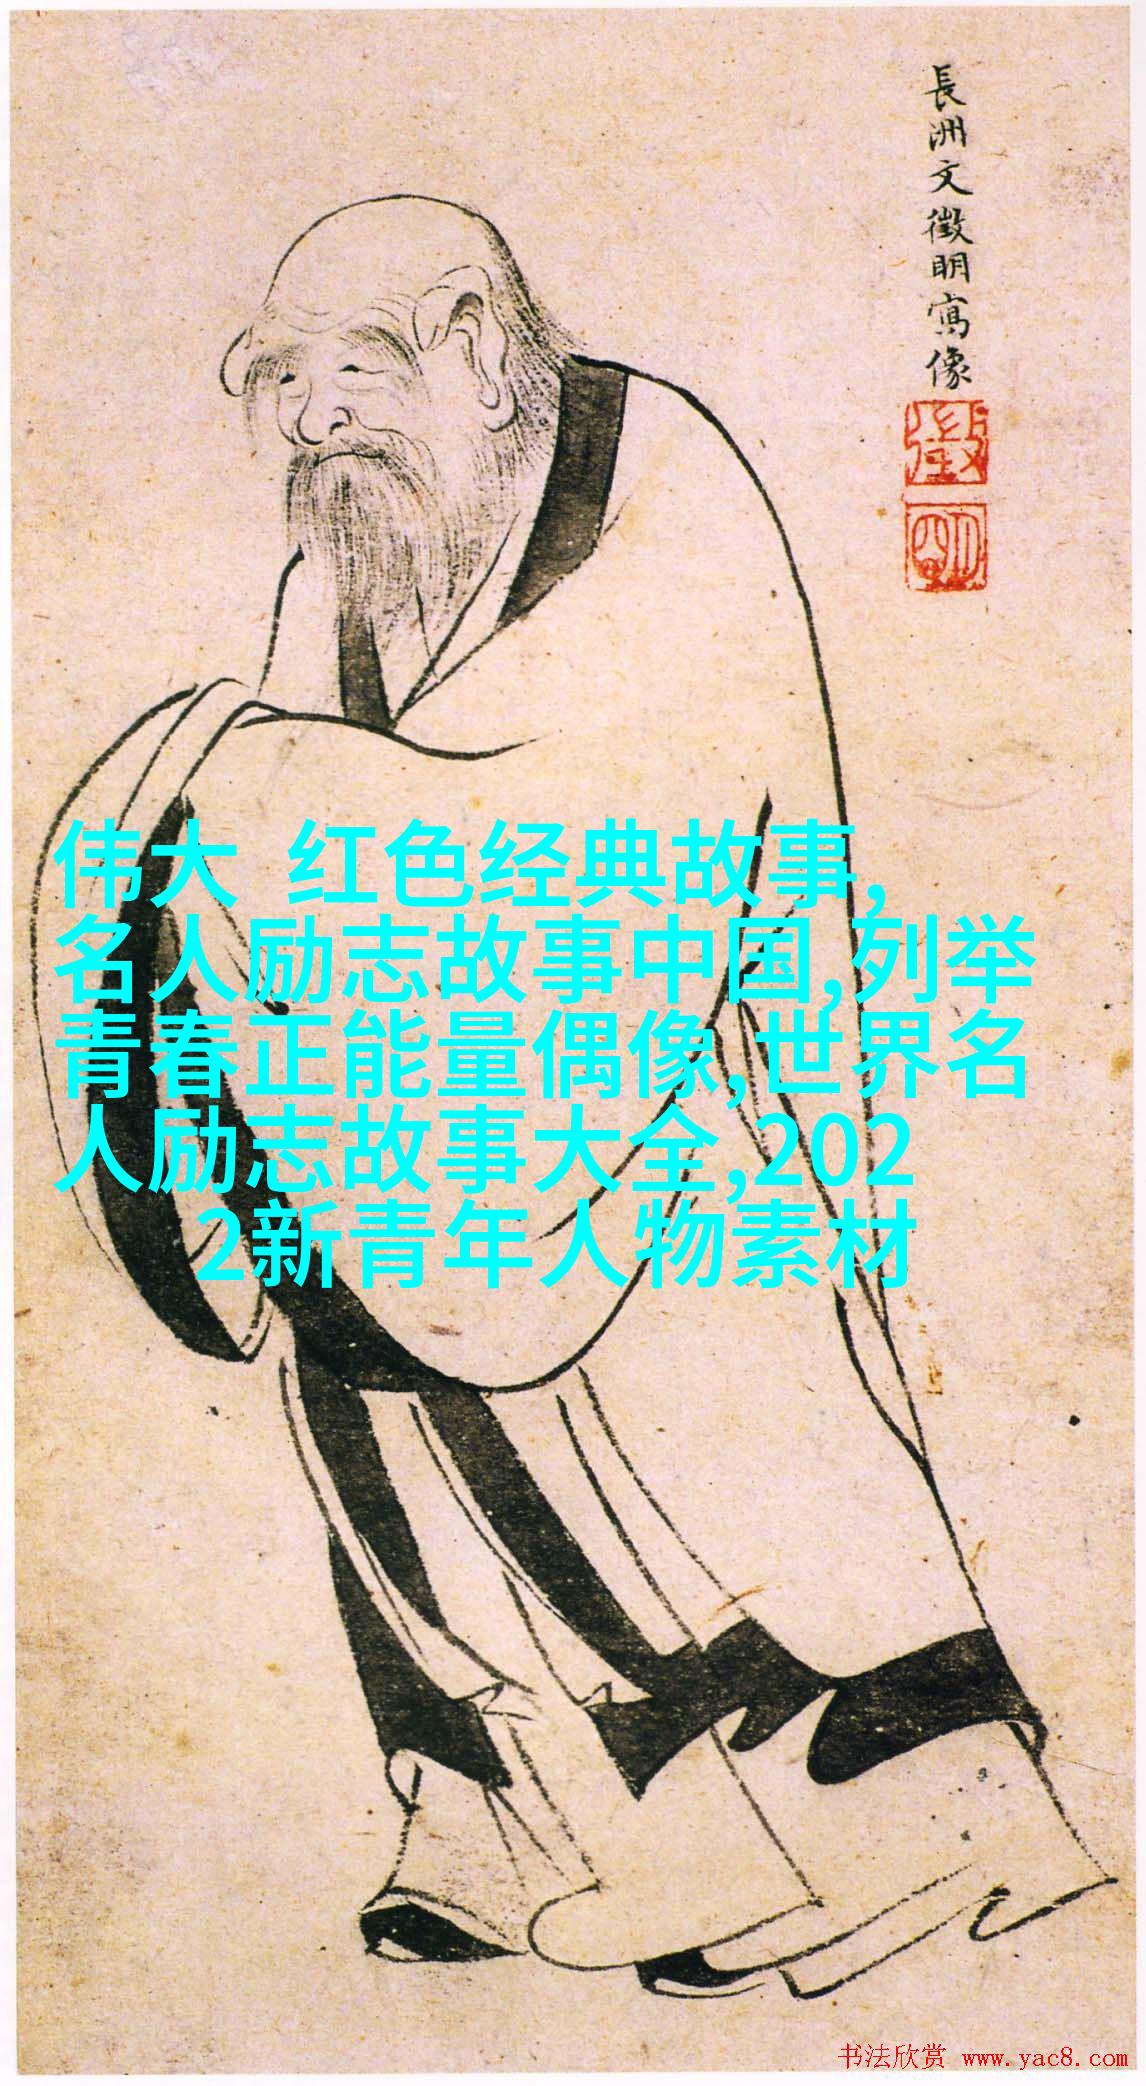 長洲文徵明寫像
徵
明
伟大 红色经典故事,
名人励志故事中国,列举
青春正能量偶像,世界名
人励志故事大全,202
2新青年人物素材
书法欣赏 www.yac8.com